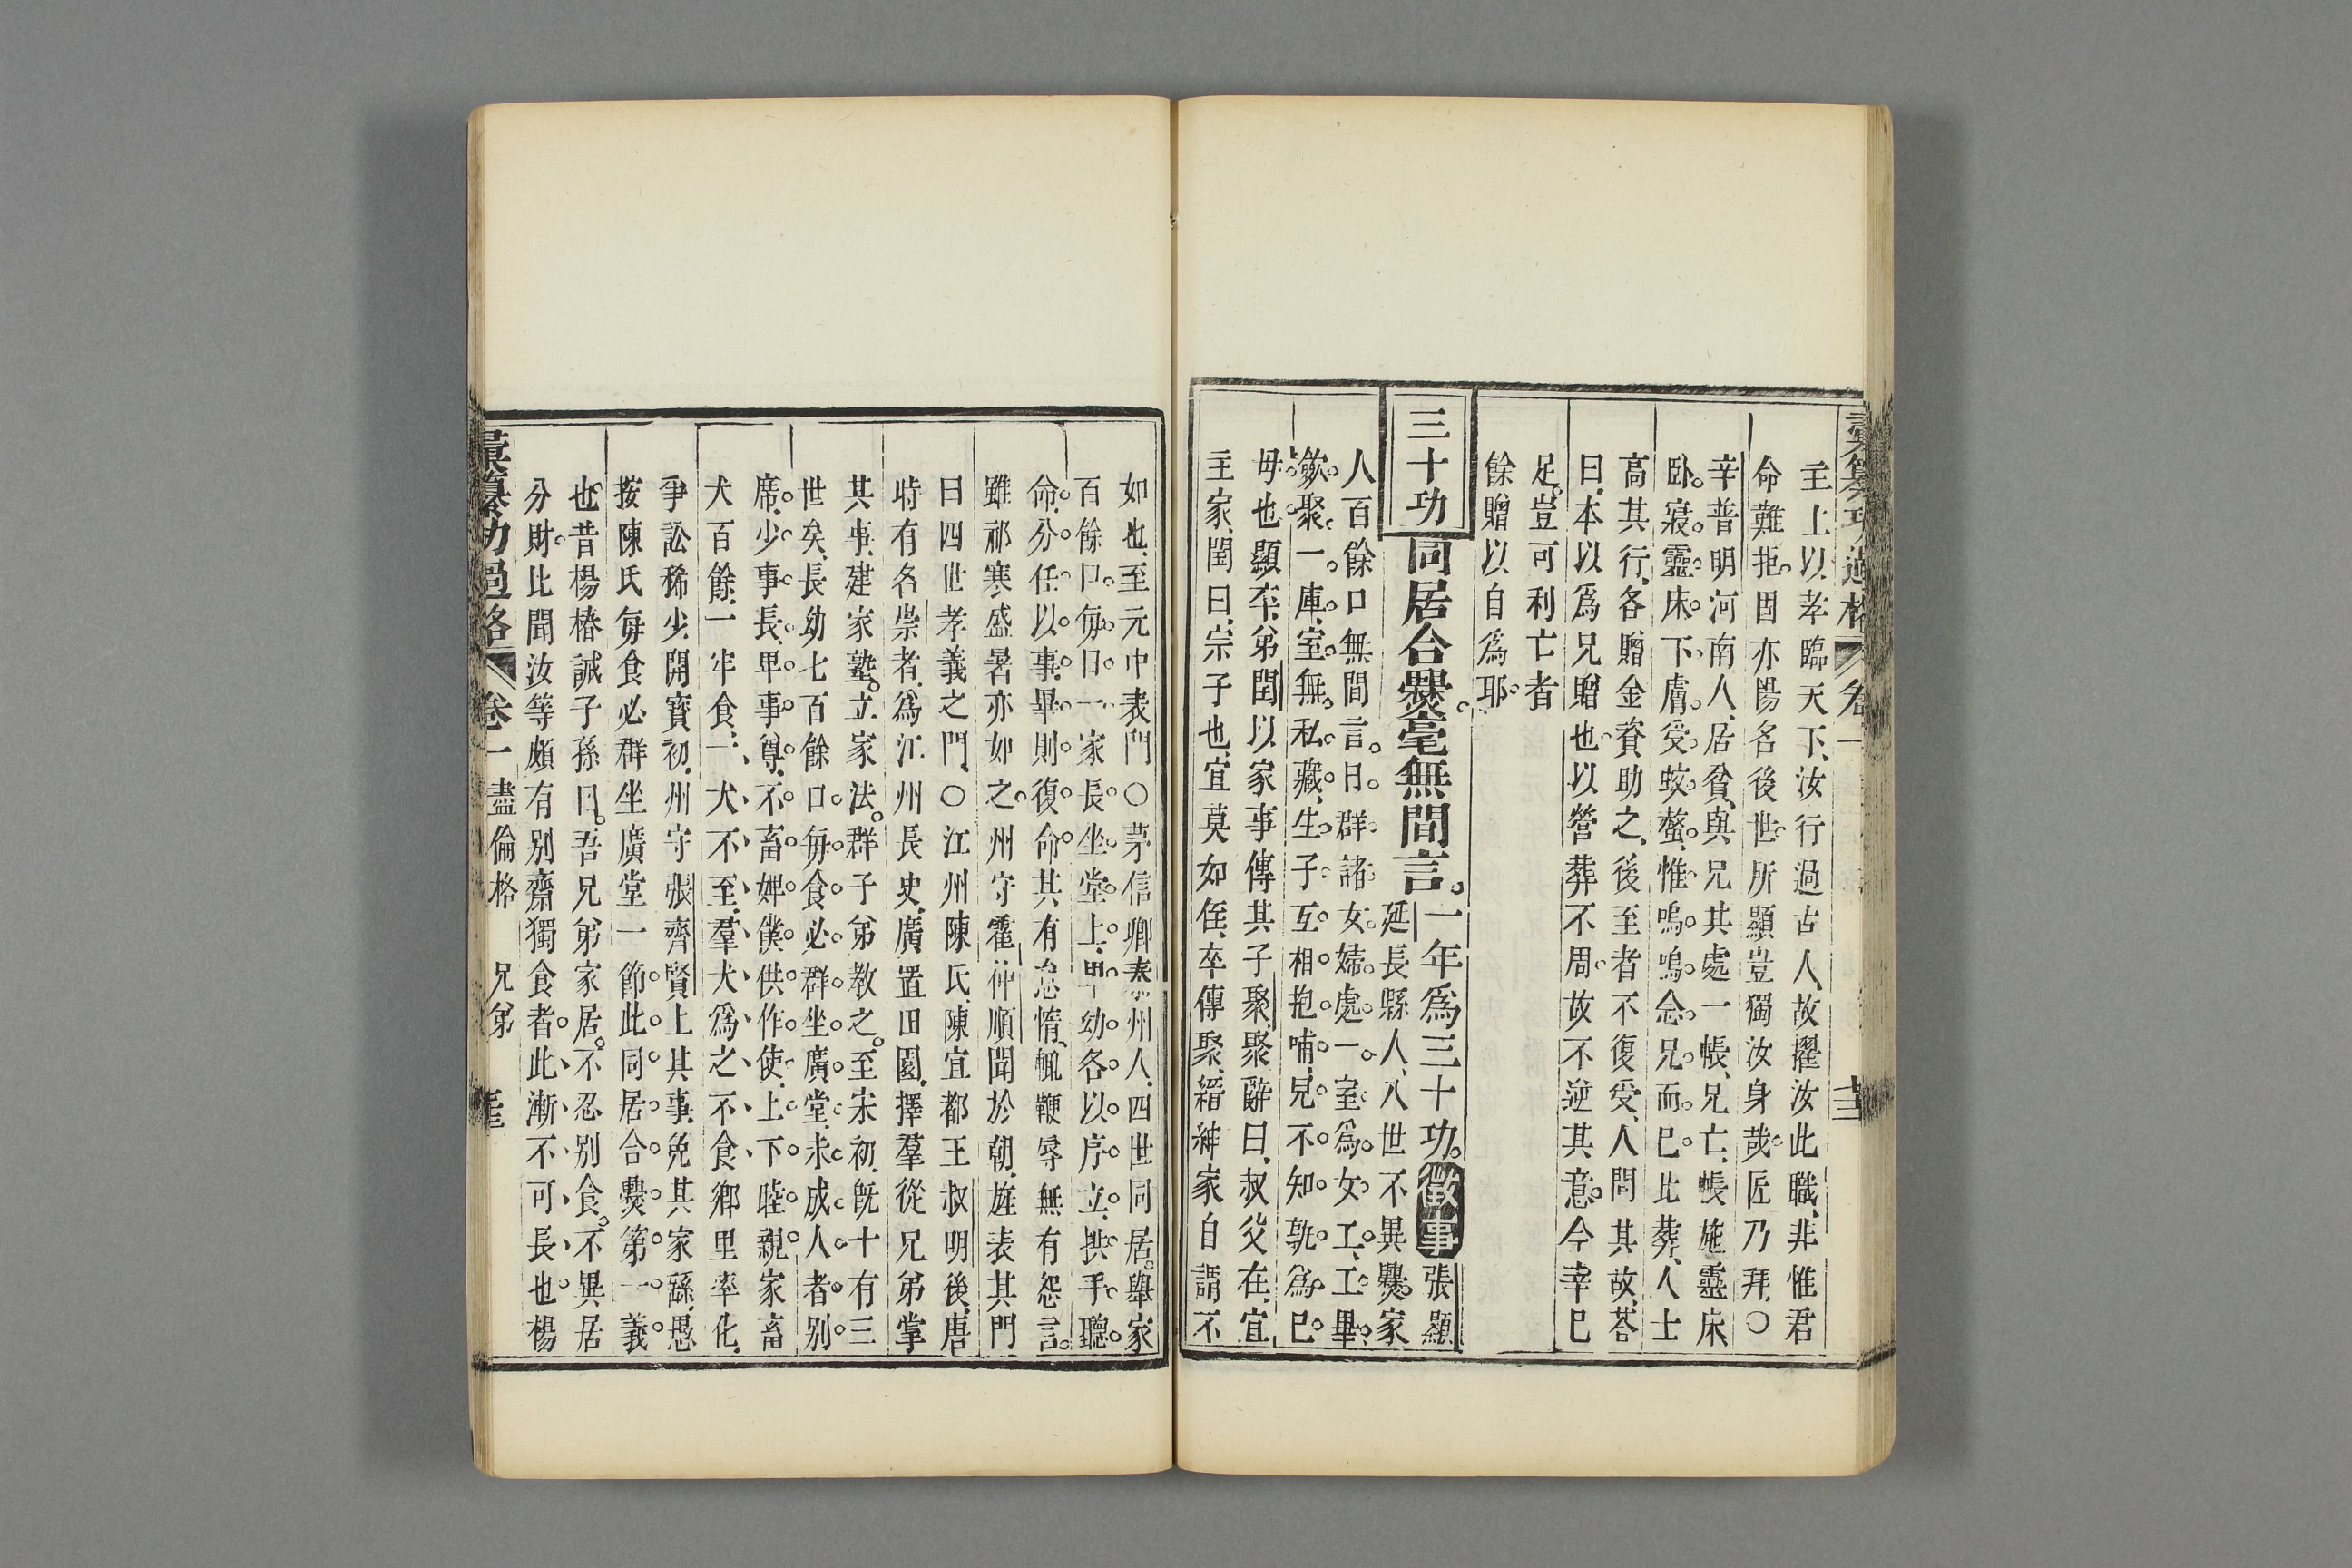 彙纂功過格 卷一
主上以孝臨天下汝行過古人故擢汝此職非惟君
命難拒固亦陽名後世所顯豈獨汝身哉匠乃拜○
辛普明河南人居貧與兄其處一帳兄亡帳施靈床
臥寢靈床下膚受蚊螫惟嗚嗚念兄而已比葬人士
高其行各贈金資助之後至者不復受人問其故荅
曰本以爲兄贈也以營葬不周故不逆其意今幸已
足豈可利亡者
餘贈以自爲耶
三十功 同居合爨毫無間言。一年爲三十功。徵事 張顯
延長縣人八世不異爨家
人百餘口無間言。日群諸女婦處一室爲女工工畢
斂聚一庫室無私藏生子互相抱哺兒不知孰爲己
母也顯卒弟閏以家事傳其子聚聚辭曰叔父在宜
主家閏曰宗子也宜莫如侄卒傳聚縉紳家自謂不
如也至元中表門○茅信卿泰州人四世同居。舉家
百餘口每日一家長坐堂上卑幼各以序立拱手聽
命分任以事畢則復命其有怠惰輒鞭辱無有怨言。
雖祁寒盛暑亦如之州守霍仲順聞於朝旌表其門
曰四世孝義之門○江州陳氏陳宜都王叔明後唐
時有名崇者爲江州長史廣置田園擇羣從兄弟掌
其事建家塾立家法。群子弟教之。至宋初旣十有三
世矣長幼七百餘口每食必群坐廣堂未成人者別
席少事長卑事尊不畜婢僕供作使上下睦親家畜
犬百餘一牢食一犬不至羣犬爲之不食鄉里率化
爭訟稀少開寶初州守張齊賢上其事免其家繇思
按陳氏每食必群坐廣堂一節此同居合爨第一義
也昔楊椿誡子孫曰吾兄弟家居。不忍别食。不異居
分財比聞汝等頗有别齋獨食者此漸不可長也楊
彙纂功過格 卷一 盡倫格 兄弟